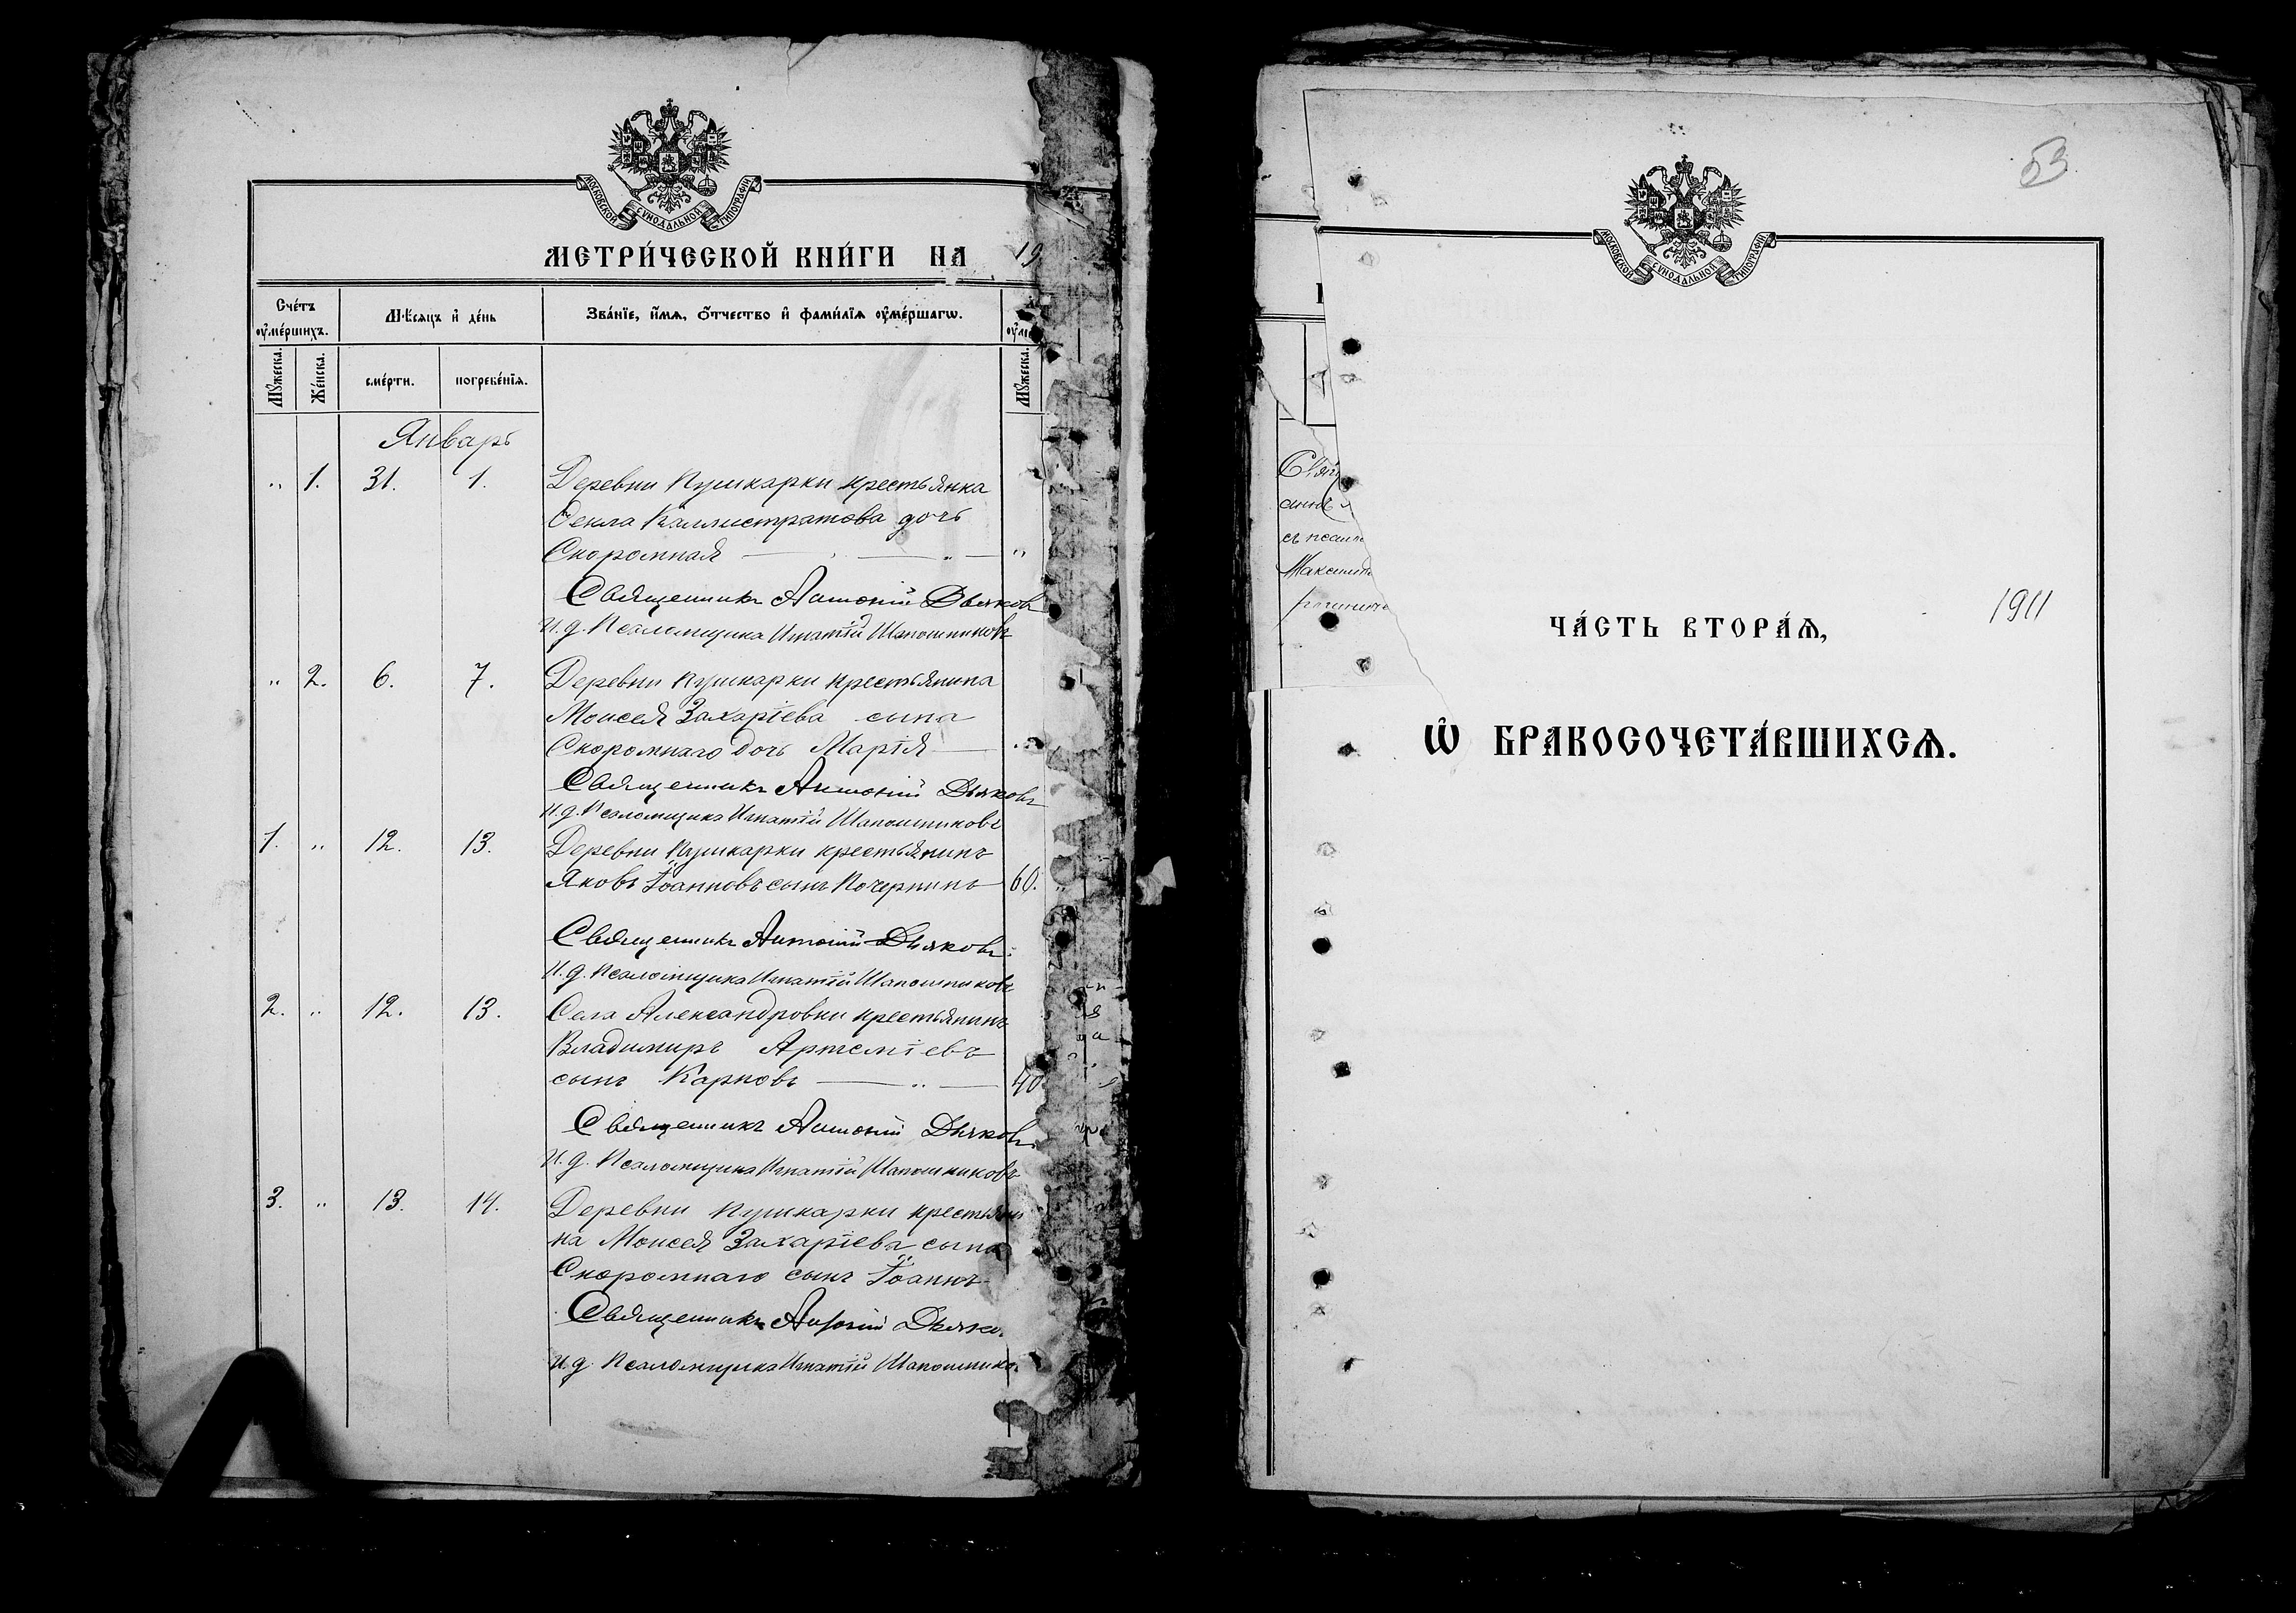 МОСКОВСКОЙ СѴНОДАЛЬНОЙ ТИПОГРАФІИ
МЕТРИ́ЧЕСКОЙ КНИ́ГИ НА 19
Сче́тъ ᲂу҆ме́ршихъ.
Мѣ́сяцъ и҆ де́нь
Зва́нїе, и҆́мѧ, ѻ҆́тчество и҆ фами́лїѧ ᲂу҆ме́ршагѡ.
Мꙋ́жеска.
Же́нска.
сме́рти.
погребе́нїѧ.
Мꙋ́жеска.
Январь
„ 1. 31. 1. Деревни Пушкарки крестьянка
Ѳекла Каллистратова дочь
Скоромная — „ — „
Священникъ Антоній Дьяковъ
И. д. Псаломщика Игнатій Шапошниковъ
„ 2. 6. 7. Деревни Пушкарки крестьянина
Моисея Захаріева сына
Скоромнаго дочь Марія — „
Священникъ Антоній Дьяковъ
И. д. Псаломщика Игнатій Шапошниковъ
1. „ 12. 13. Деревни Пушкарки крестьянинъ
Яковъ Іоанновъ сынъ Почернинъ 60.
Священникъ Антоній Дьяковъ
И. д. Псаломщика Игнатій Шапошниковъ
2. „ 12. 13. Села Александровки крестьянинъ
Владимиръ Артеміевъ
сынъ Карповъ — „ — 40
Священникъ Антоній Дьяковъ
И. д. Псаломщика Игнатій Шапошниковъ
3. „ 13. 14. Деревни Пушкарки крестьяни
на Моисея Захаріева сына
Скоромнаго сынъ Іоаннъ
Священникъ Антоній Дьяко
И. д. Псаломщика Игнатій Шапошнико
53.
МОСКОВСКОЙ СѴНОДАЛЬНОЙ ТИПОГРАФІИ
1911
ЧА́СТЬ ВТОРА́Ѧ,
Ѡ҆ БРАКОСОЧЕТА́ВШИХСѦ.